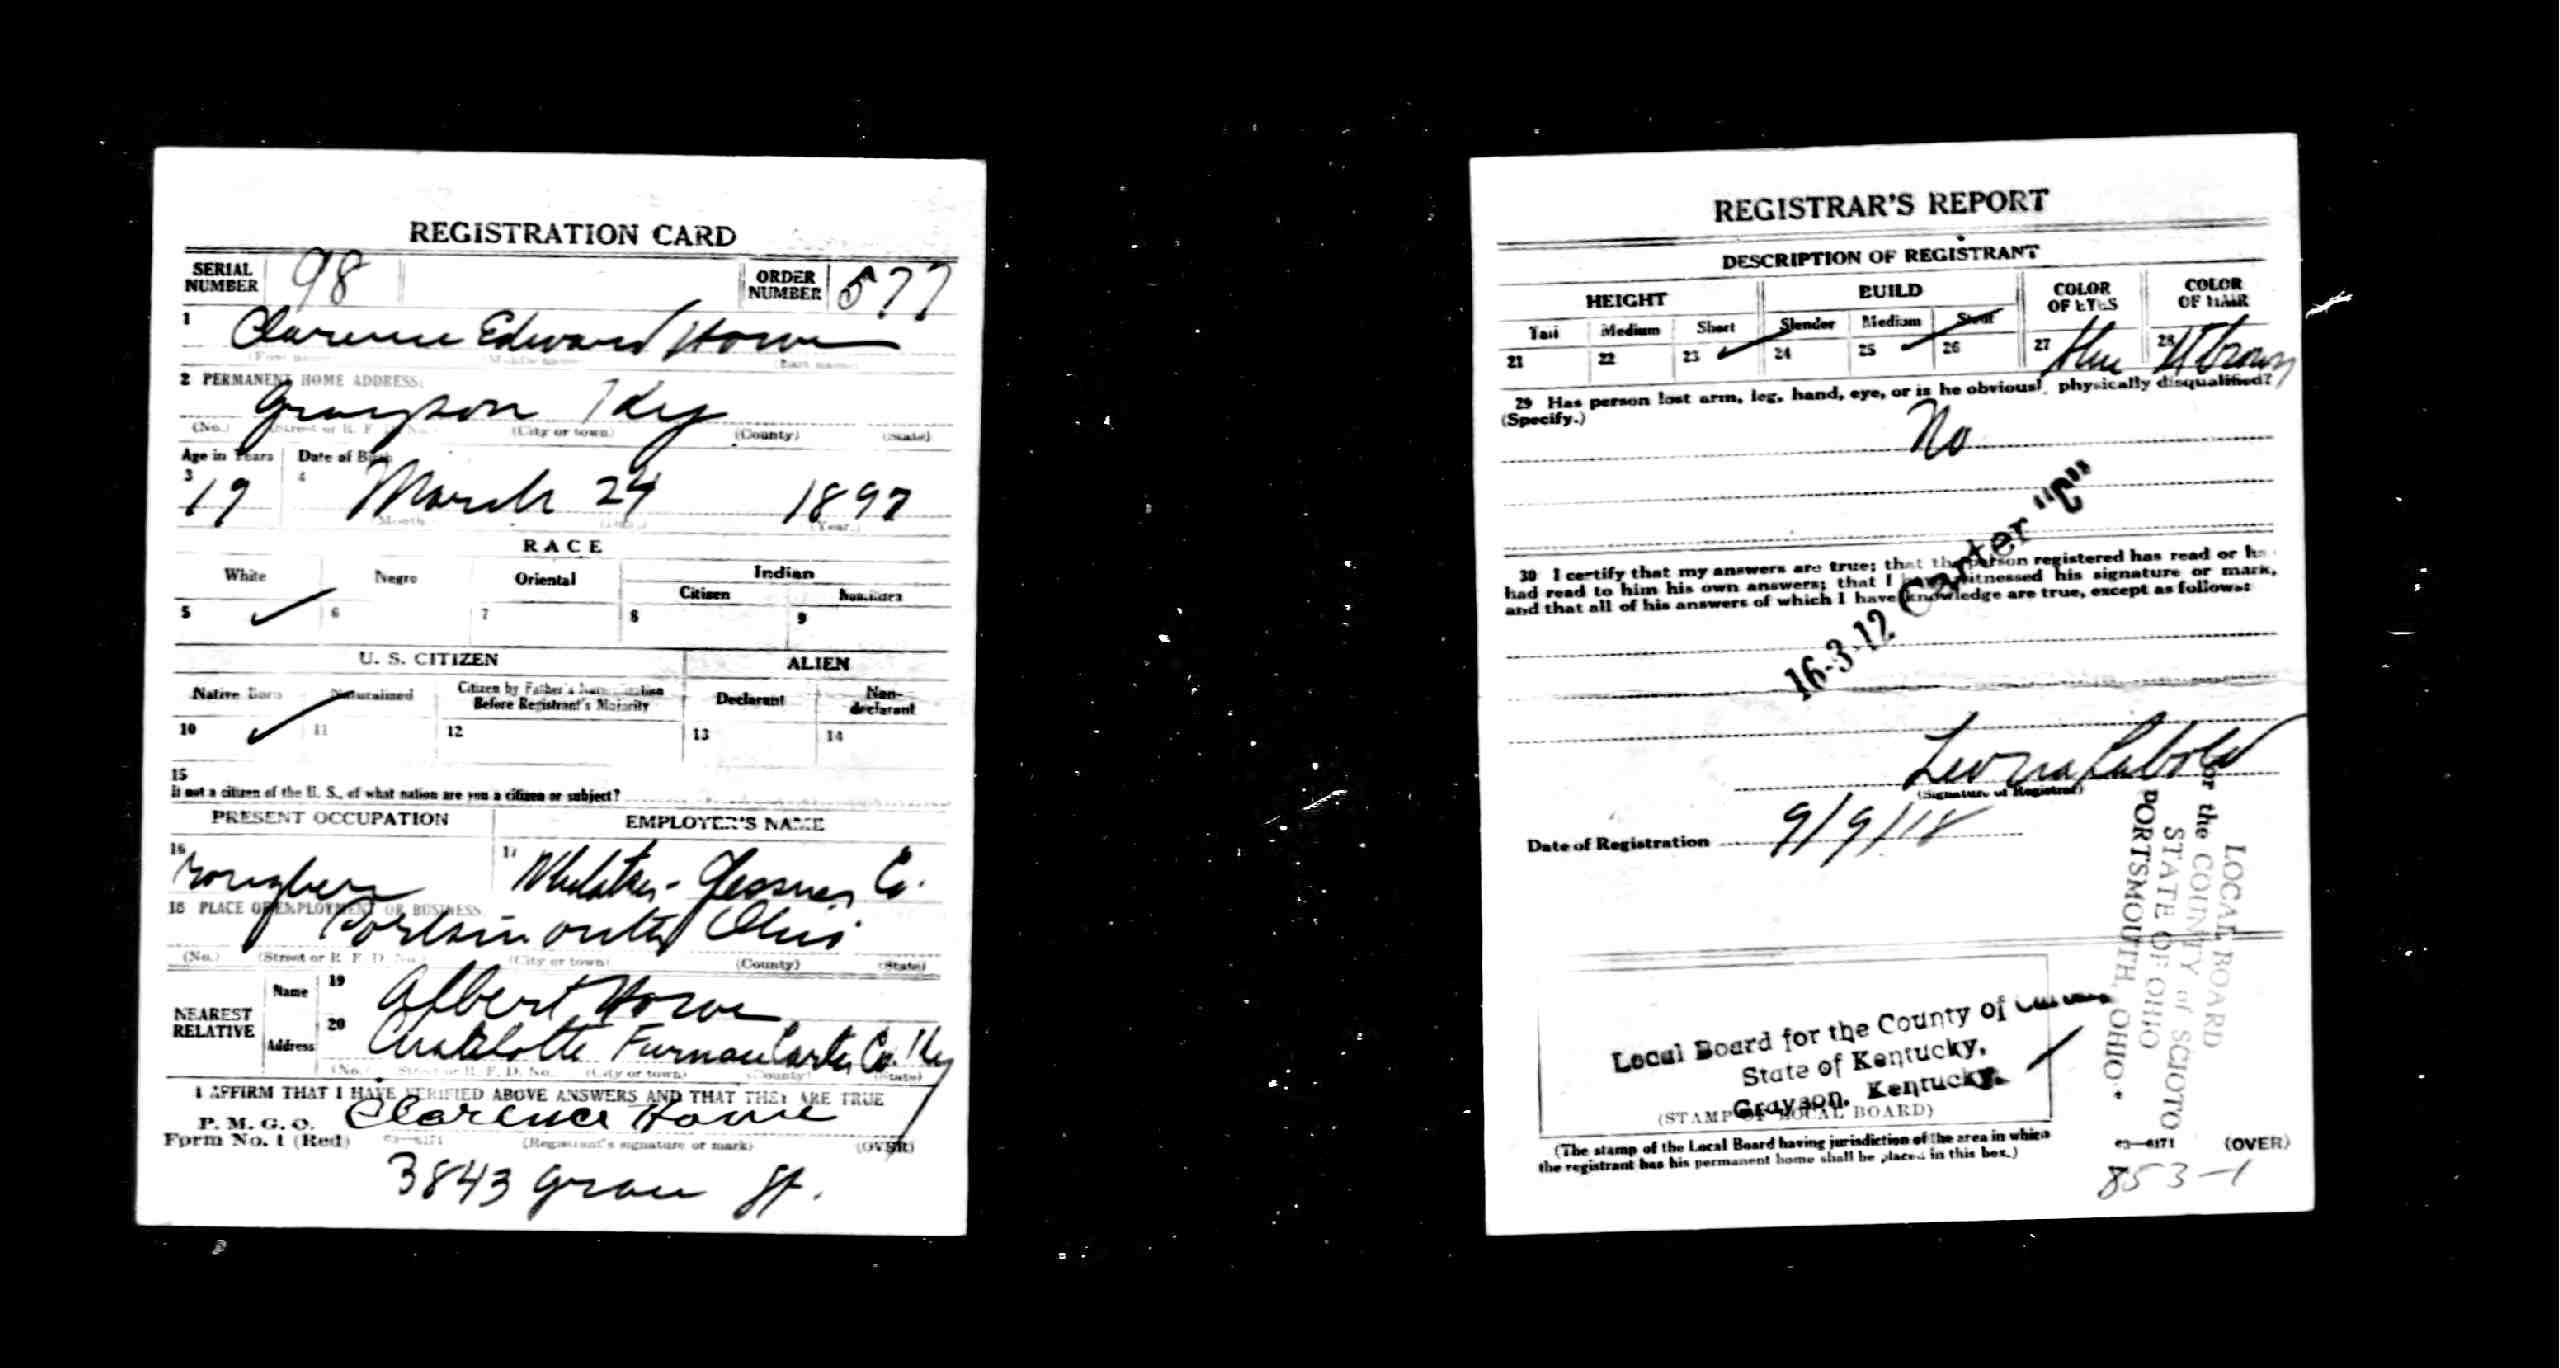 REGISTRATION CARD
SERIAL NUMBER 98 ORDER NUMBER 577
1 Clarence Edward Howe
(First name) (Middle name) (Last name)
2 PERMANENT HOME ADDRESS:
Grayson Ky
(No.) (Street or R. F. D. No.) (City or town) (County) (State)
Age in Years Date of Birth
3 19 4 March 24 1897
(Month.) (Day.) (Year.)
RACE
White Negro Oriental Indian
Citizen Noncitizen
5 ✓ 6 7 8 9
U. S. CITIZEN ALIEN
Native Born Naturalized Citizen by Father's Naturalization Before Registrant's Majority Declarant Non-declarant
10 ✓ 11 12 13 14
15
If not a citizen of the U. S., of what nation are you a citizen or subject?
PRESENT OCCUPATION EMPLOYER'S NAME
16 rougher 17 Whitaker-Glessner Co.
18 PLACE OF EMPLOYMENT OR BUSINESS:
Portsmouth Ohio
(No.) (Street or R. F. D. No.) (City or town) (County) (State)
NEAREST RELATIVE
Name 19 Albert Howe
Address 20 Charlotte Furnace Carter Co. Ky
(No.) (Street or R. F. D. No.) (City or town) (County) (State)
I AFFIRM THAT I HAVE VERIFIED ABOVE ANSWERS AND THAT THEY ARE TRUE
P. M. G. O.
Form No. 1 (Red) Clarence Howe
(Registrant's signature or mark) (OVER)
3843 St.
REGISTRAR'S REPORT
DESCRIPTION OF REGISTRANT
HEIGHT BUILD COLOR OF EYES COLOR OF HAIR
Tall Medium Short Slender Medium Stout
21 22 23 ✓ 24 25 ✓ 26 27 Blue 28 Lt brown
29 Has person lost arm, leg, hand, eye, or is he obviously physically disqualified?
(Specify.)
No
30 I certify that my answers are true; that the person registered has read or has
had read to him his own answers; that I have witnessed his signature or mark,
and that all of his answers of which I have knowledge are true, except as follows:
16-3-12 Carter "C"
(Signature of Registrar)
Date of Registration 9/9/18
LOCAL BOARD
for the COUNTY of SCIOTO
STATE OF OHIO
PORTSMOUTH, OHIO.
Local Board for the County of
State of Kentucky,
Grayson, Kentucky.
(STAMP OF LOCAL BOARD)
(The stamp of the Local Board having jurisdiction of the area in which
the registrant has his permanent home shall be placed in this box.)
63—6171 (OVER)
853-1